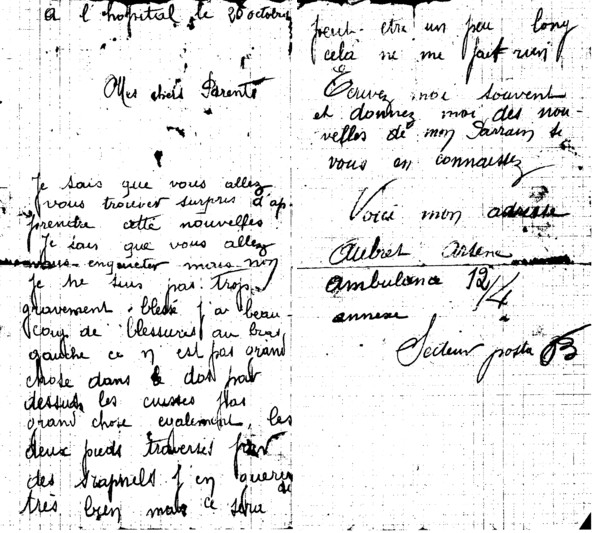 a l hopital le 20 octobre
Mes chers Parents
Je sais que vous allez
vous trouver surpris d'ap-
prendre cette nouvelles
Je sais que vous allez
vous enquieter mais non
je ne suis pas trop
gravement blessé j'ai beau-
coup de blessures au bras
gauche ce n est pas grand
chose dans le dos par
dessus les cuisses pas
grand chose egalement, les
deux pieds traverses par
des srapnels j'en guerirer
très bien mais ce sera
peut-etre un peu long
cela ne me fait rien
Ecrivez moi souvent
et donnez moi des nou-
velles de mon Parrain si
vous en connaissez
Voici mon adresse
Aubret Arsene
ambulance 12/4
annexe
Secteur posta